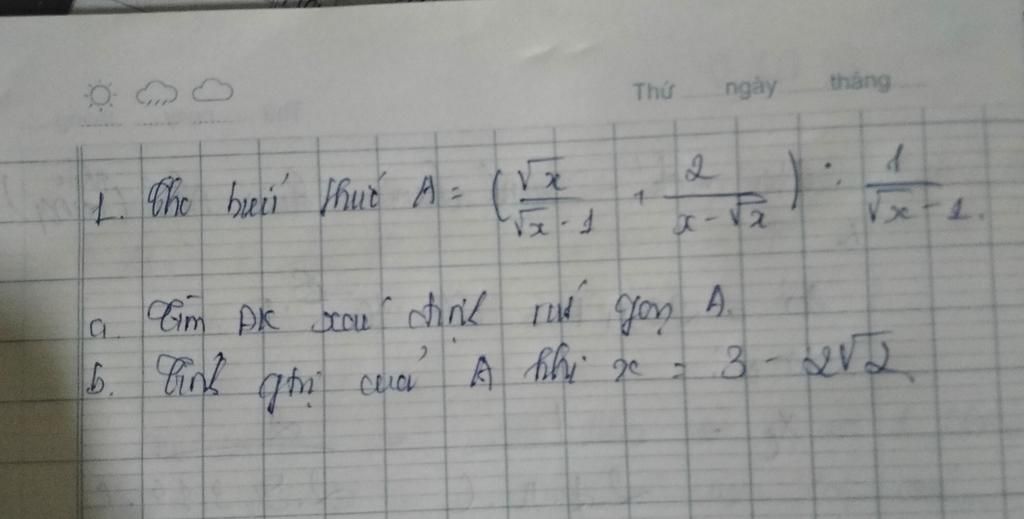 Thứ ngày tháng
1. Cho biểu thức A = ( √x / (√x - 1) + 2 / (x - √x) ) : 1 / (√x - 1).
a. Tìm ĐK xác định rút gọn A.
b. Tính gtrị của A khi x = 3 - 2√2